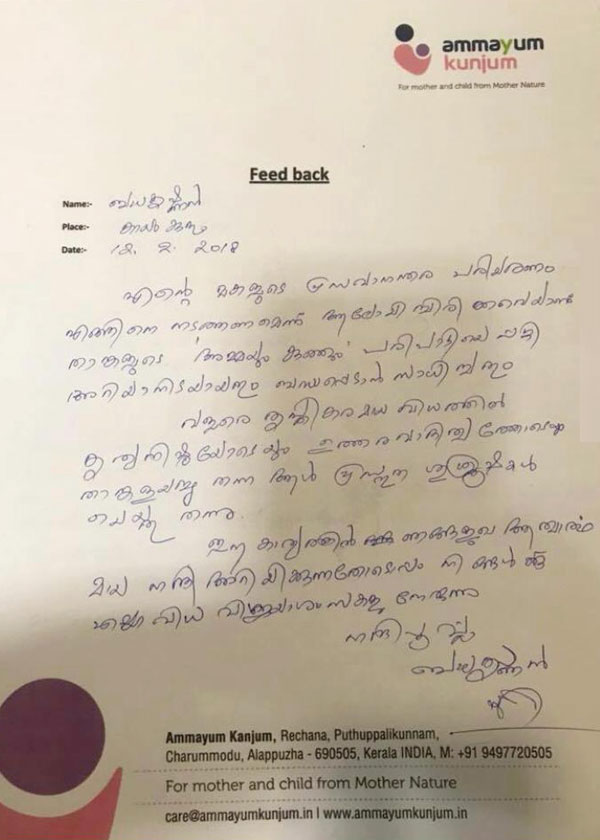 ammayum
kunjum
For mother and child from Mother Nature
Feed back
Name:-
Place:-
Date:- 12. 2. 2018
എന്റെ മകളുടെ പ്രസവാനന്തര പരിചരണം
എങ്ങിനെ നടത്തണമെന്ന് ആലോചിച്ചിരിക്കവെയാണ്
താങ്കളുടെ 'അമ്മയും കുഞ്ഞും' പരിപാടിയെ പറ്റി
അറിയാനിടയായതും ബന്ധപ്പെടാൻ സാധിച്ചതും
വളരെ തൃപ്തികരമായ വിധത്തിൽ
കൃത്യനിഷ്ഠയോടെയും ഉത്തരവാദിത്വത്തോടെയും
താങ്കളയച്ചു തന്ന ആൾ പ്രസ്തുത ശുശ്രൂഷകൾ
ചെയ്തു തന്നു.
ഈ കാര്യത്തിൽ ഞങ്ങളുടെ ആത്മാർത്ഥ
മായ നന്ദി അറിയിക്കുന്നതോടൊപ്പം നിങ്ങൾക്ക്
എല്ലാ വിധ വിജയാശംസകളും നേരുന്നു
നന്ദിപൂർവ്വം
Ammayum Kanjum, Rechana, Puthuppalikunnam,
Charummodu, Alappuzha - 690505, Kerala INDIA, M: +91 9497720505
For mother and child from Mother Nature
care@ammayumkunjum.in I www.ammayumkunjum.in